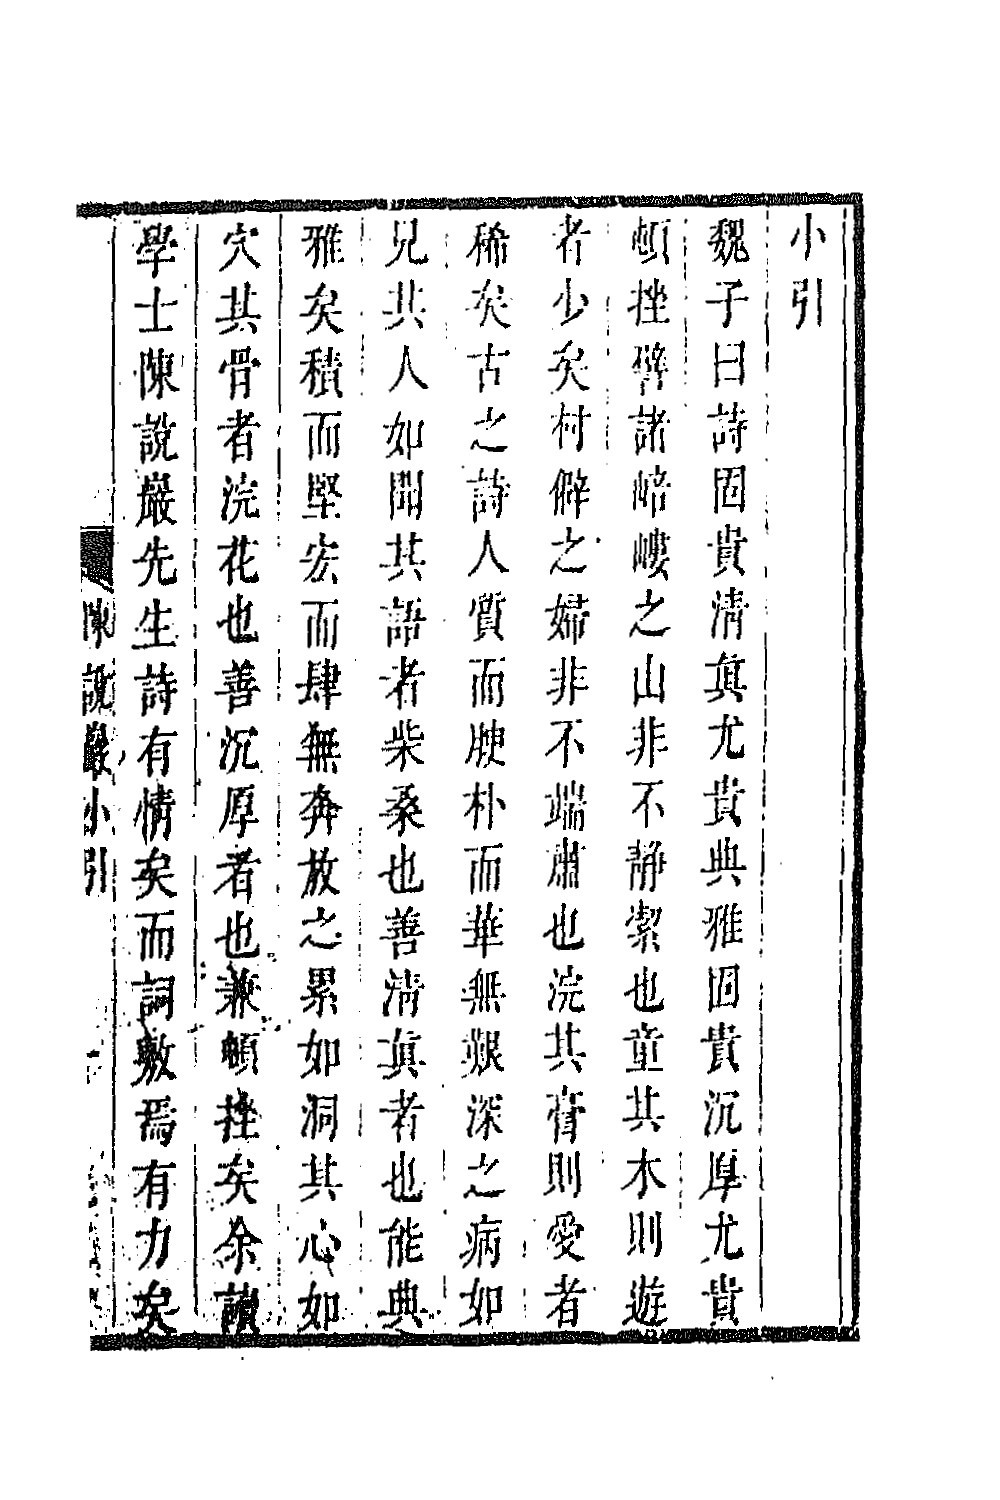 小引
魏子曰詩固貴清真尤貴典雅固貴沉厚尤貴
頓挫譬諸峿嶁之山非不靜潔也童其木則遊
者少矣村僻之婦非不端肅也浣其膏則愛者
稀矣古之詩人質而腴朴而華無艱深之病如
見其人如聞其語者柴桑也善清真者也能典
雅矣積而堅宏而肆無奔放之累如洞其心如
穴其骨者浣花也善沉厚者也兼頓挫矣余讀
學士陳說巖先生詩有情矣而詞敷焉有力矣
陳說巖小引